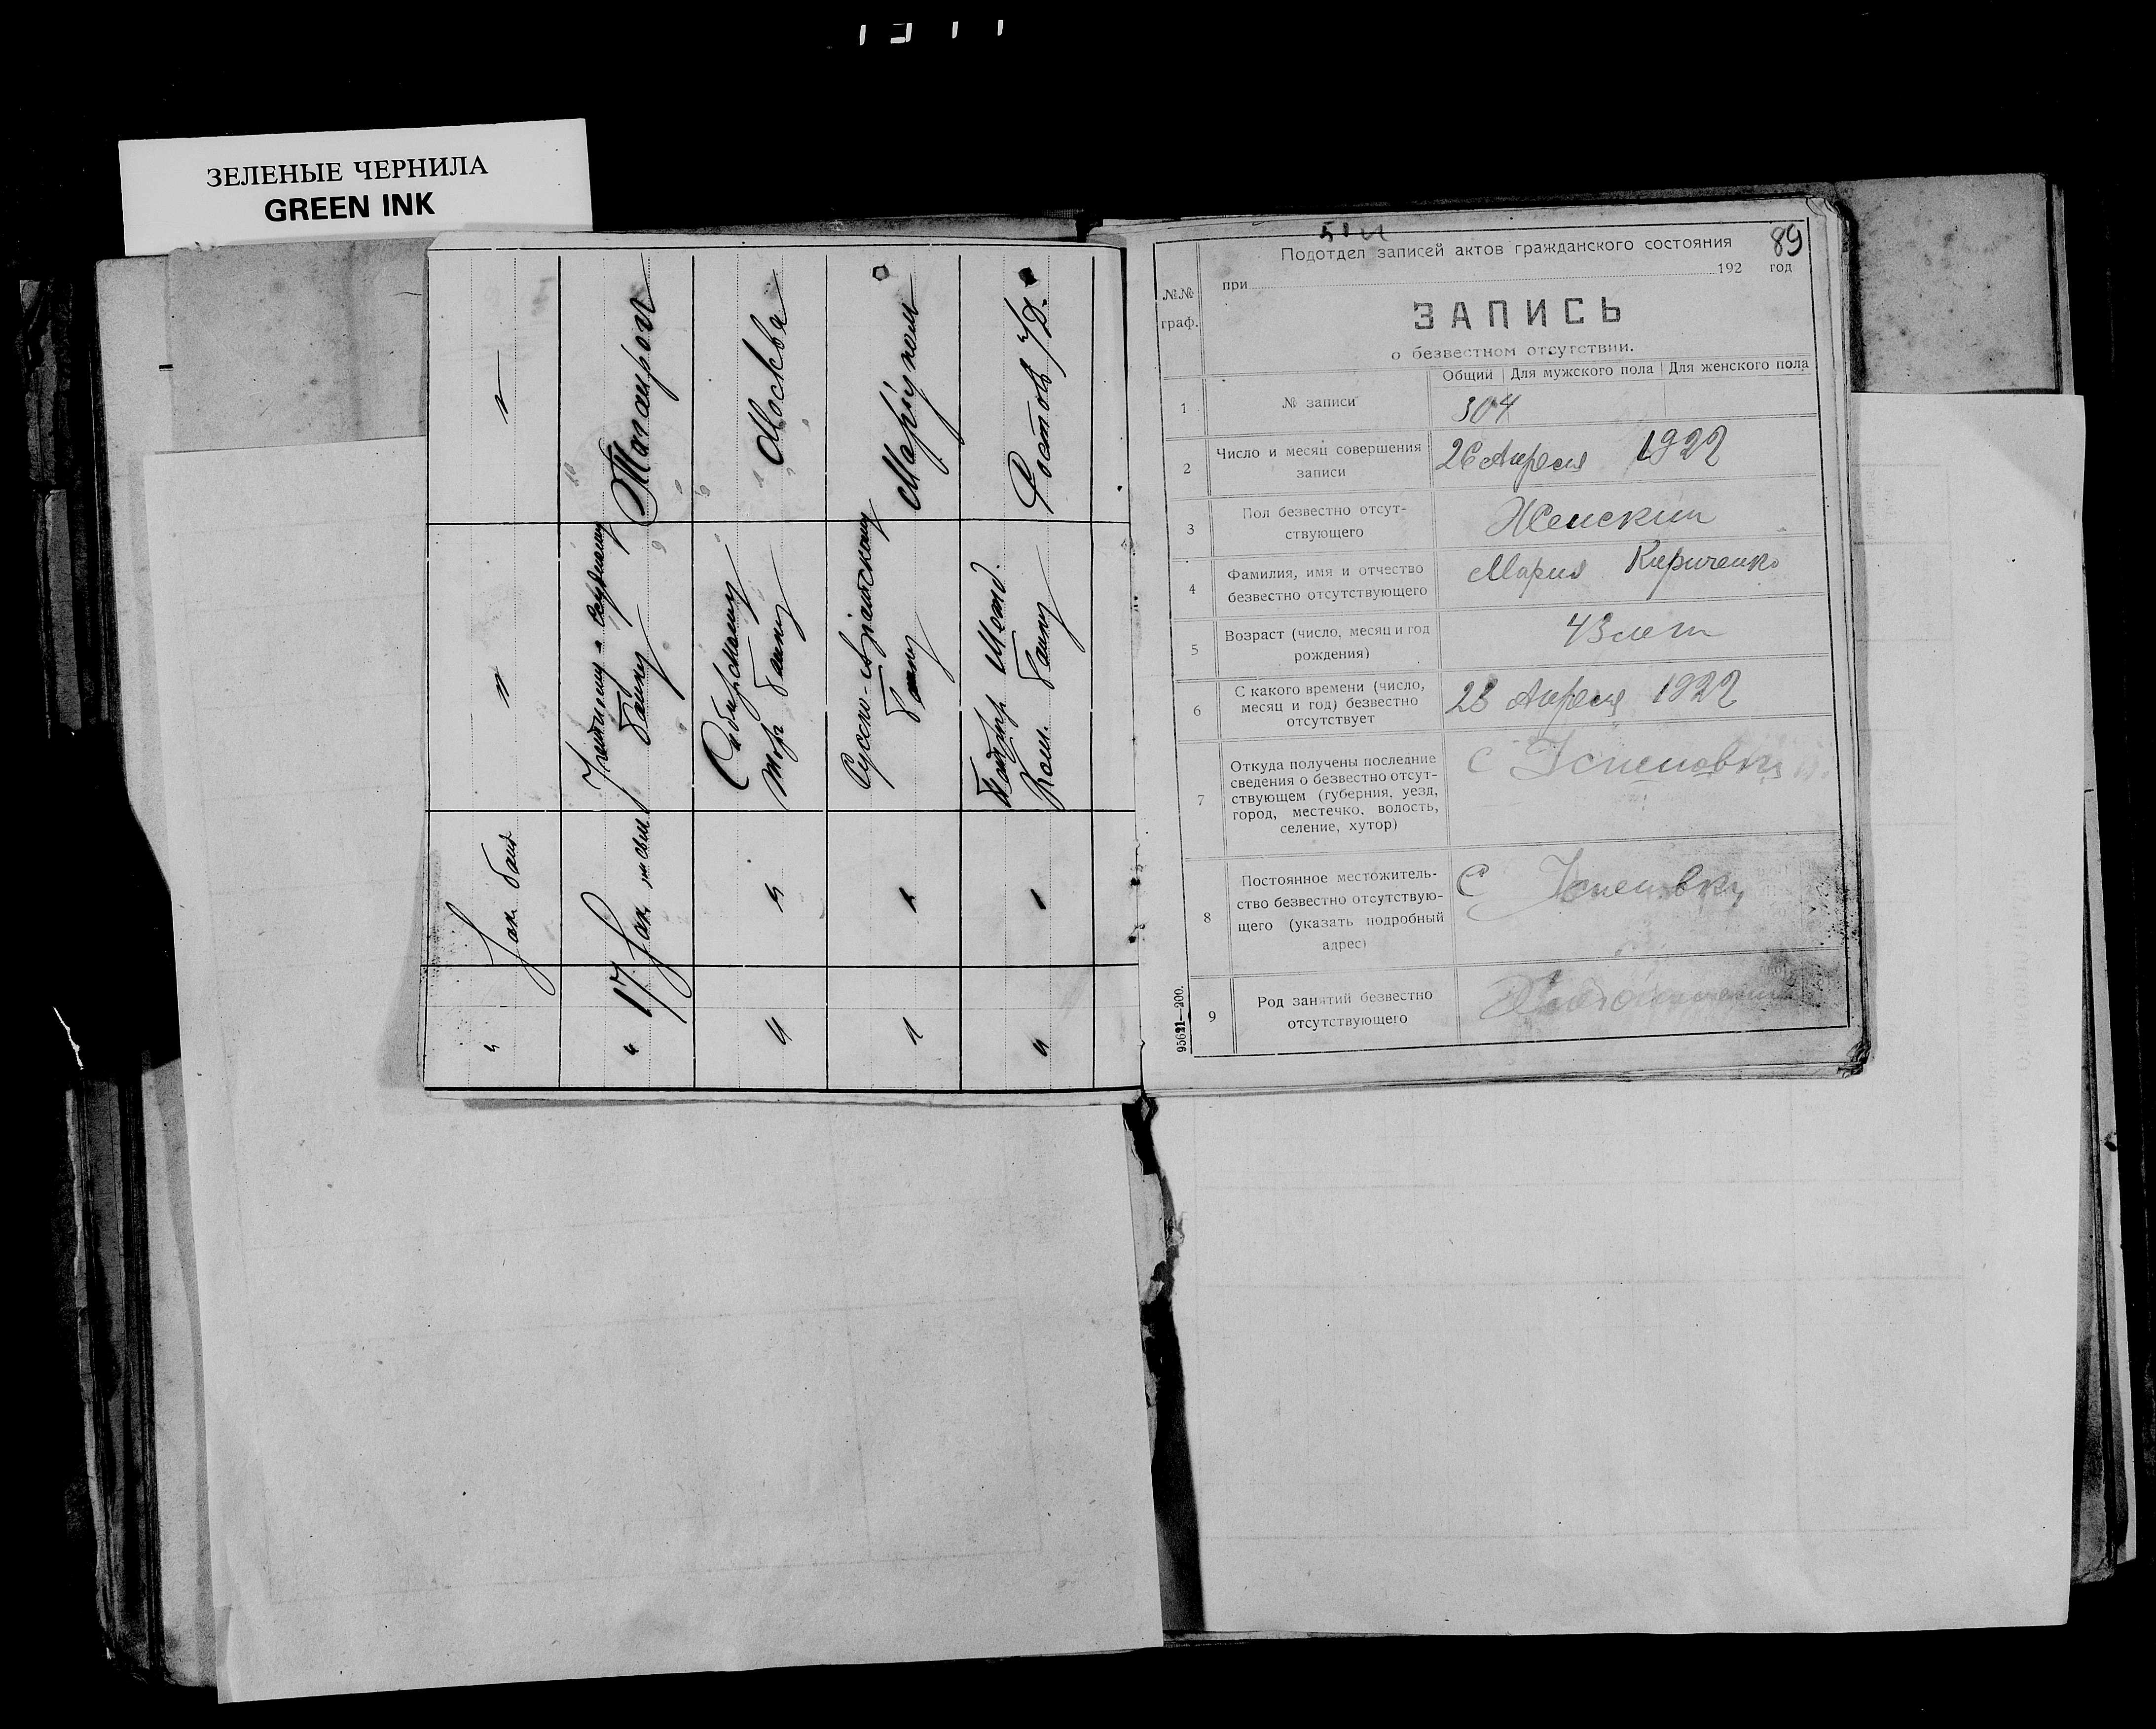 ЗЕЛЕНЫЕ ЧЕРНИЛА
GREEN INK
"
"
Зак. банд
"
Таганрог
Учетному и Ссудному
банку
17
"
Москва
Сибирскому
Тор банку
"
"
Мариуполь
Русско-Азиатскому
банку
"
"
Ростов н/Д.
Ком. банку
"
"
89
Подотдел записей актов гражданского состояния
при 192 год
№№
граф.
ЗАПИСЬ
о безвестном отсутствии.
Общий | Для мужского пола | Для женского пола
1 № записи 304
2 Число и месяц совершения
записи
26 Апреля 1922
3 Пол безвестно отсут-
ствующего
Женский
4 Фамилия, имя и отчество
безвестно отсутствующего
Мария Кириченко
5 Возраст (число, месяц и год
рождения)
43 лет
6 С какого времени (число,
месяц и год) безвестно
отсутствует
23 Апреля 1922
7 Откуда получены последние
сведения о безвестно отсут-
ствующем (губерния, уезд,
город, местечко, волость,
селение, хутор)
С Успеновка
8 Постоянное местожитель-
ство безвестно отсутствую-
щего (указать подробный
адрес)
С Успеновка
9 Род занятий безвестно
отсутствующего
95621—200.